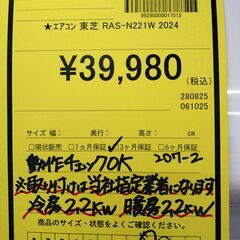 99290000017512
★エアコン 東芝 RAS-N221W 2024
¥39,980
(税込)
280825
061025
サイズ 幅： 奥行： 高さ： cm
□現状販売 □1ヵ月保証 ☑3ヶ月保証 □6ヶ月保証
動作チェックOK 207-2
※取り付けは当社指定業者になります
冷房2.2kW 暖房2.2kW
商品のサイズ・状態をよくご確認